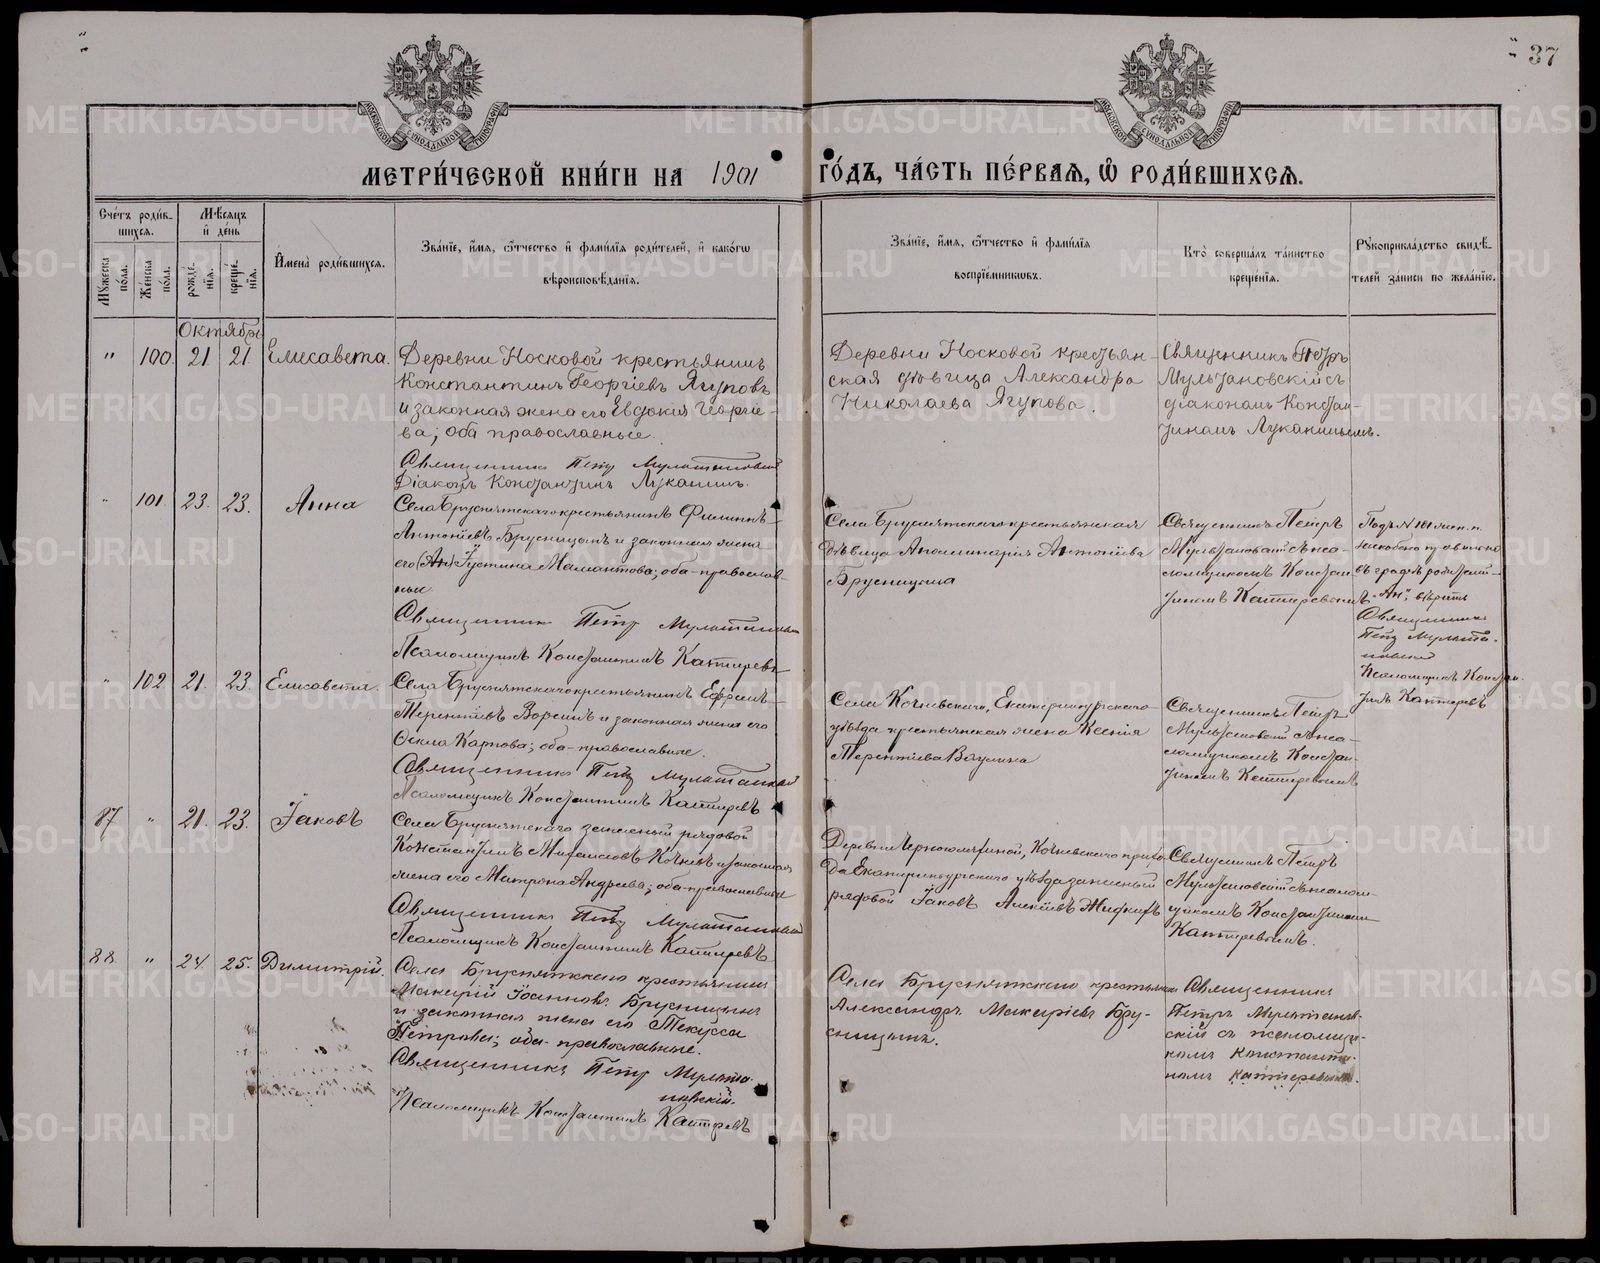 37
МОСКОВСКОЙ СѴНОДАЛЬНОЙ ТИПОГРАФІИ
МОСКОВСКОЙ СѴНОДАЛЬНОЙ ТИПОГРАФІИ
МЕТРИ́ЧЕСКОЙ КНИ́ГИ НА 1901 ГО́ДЪ, ЧА́СТЬ ПЕ́РВАѦ, Ѽ РОДИ́ВШИХСѦ.
Сче́тъ роди́в-
шихсѧ.
Мꙋжеска по́ла.
Же́нска по́ла.
Мѣ́сѧцъ
и҆ де́нь
рожде́-
нїѧ.
креще́-
нїѧ.
И҆мена̀ роди́вшихсѧ.
Зва́нїе, и҆́мѧ, ѻ҆́тчество и҆ фами́лїѧ роди́телей, и҆ како́гѡ
вѣроисповѣ́данїѧ.
Зва́нїе, и҆́мѧ, ѻ҆́тчество и҆ фами́лїѧ
воспрїе́мниковъ.
Кто̀ соверша́лъ та́инство
креще́нїѧ.
Рꙋкоприкла́дство свидѣ́-
телей за́писи по жела́нїю.
Октябрь
" 100. 21 21 Елисавета.
Деревни Носковой крестьянинъ
Константинъ Георгіевъ Ягуповъ
и законная жена его Евдокія Георгіе-
ва; оба православные.
Священникъ Петръ Мультановскій
Діаконъ Константинъ Лукашинъ.
Деревни Носковой крестьян-
ская дѣвица Александра
Николаева Ягупова.
Священникъ Петръ
Мультановскій съ
діакономъ Констан-
тиномъ Лукашинымъ.
" 101 23. 23. Анна
Села Бруснятскаго крестьянинъ Филиппъ
Антоніевъ Брусницынъ и законная жена
его (Ан) Іустина Мамантова; оба православ-
ные
Священникъ Петръ Мультановскій
Псаломщикъ Константинъ Катыревъ
Села Бруснятскаго крестьянская
дѣвица Аполлинарія Антоніева
Брусницына
Священникъ Петръ
Мультановскій съ пса-
ломщикомъ Констан-
тиномъ Катыревымъ
Подъ № 101 жен. п.
въ графѣ родители
"Ан", вѣрить
Священникъ
Петръ Мульта-
новскій
Псаломщикъ Констан-
тинъ Катыревъ
" 102 21. 23. Елисавета.
Села Бруснятскаго крестьянинъ Ефремъ
Терентіевъ Воринъ и законная жена его
Ѳекла Карпова; оба православные.
Священникъ Петръ Мультановскій
Псаломщикъ Константинъ Катыревъ
Села Кочневскаго, Екатеринбургскаго
уѣзда крестьянская жена Ксенія
Терентіева Ваулина
Священникъ Петръ
Мультановскій съ пса-
ломщикомъ Констан-
тиномъ Катыревымъ
87 " 21. 23. Іаковъ
Села Бруснятскаго запасный рядовой
Константинъ Михаиловъ Кочневъ и законная
жена его Матрона Андреева; оба православные
Священникъ Петръ Мультановскій
Псаломщикъ Константинъ Катыревъ
Деревни Кочневскаго прихо-
да Екатеринбургскаго уѣзда запасный
рядовой Іаковъ Алексіевъ
Священникъ Петръ
Мультановскій съ псалом-
щикомъ Константиномъ
Катыревымъ.
88 " 24. 25. Димитрій.
Села Бруснятскаго крестьянинъ
Макарій Іоанновъ Брусницынъ
и законная жена его Текусса
Петрова; оба православные.
Священникъ Петръ Мульта-
новскій.
Псаломщикъ Константинъ Катыревъ
Села Бруснятскаго крестьянинъ
Александръ Макаріевъ Бру-
сницынъ.
Священникъ
Петръ Мультанов-
скій съ псаломщи-
комъ Константи-
номъ Катыревымъ.
METRIKI.GASO-URAL.RU